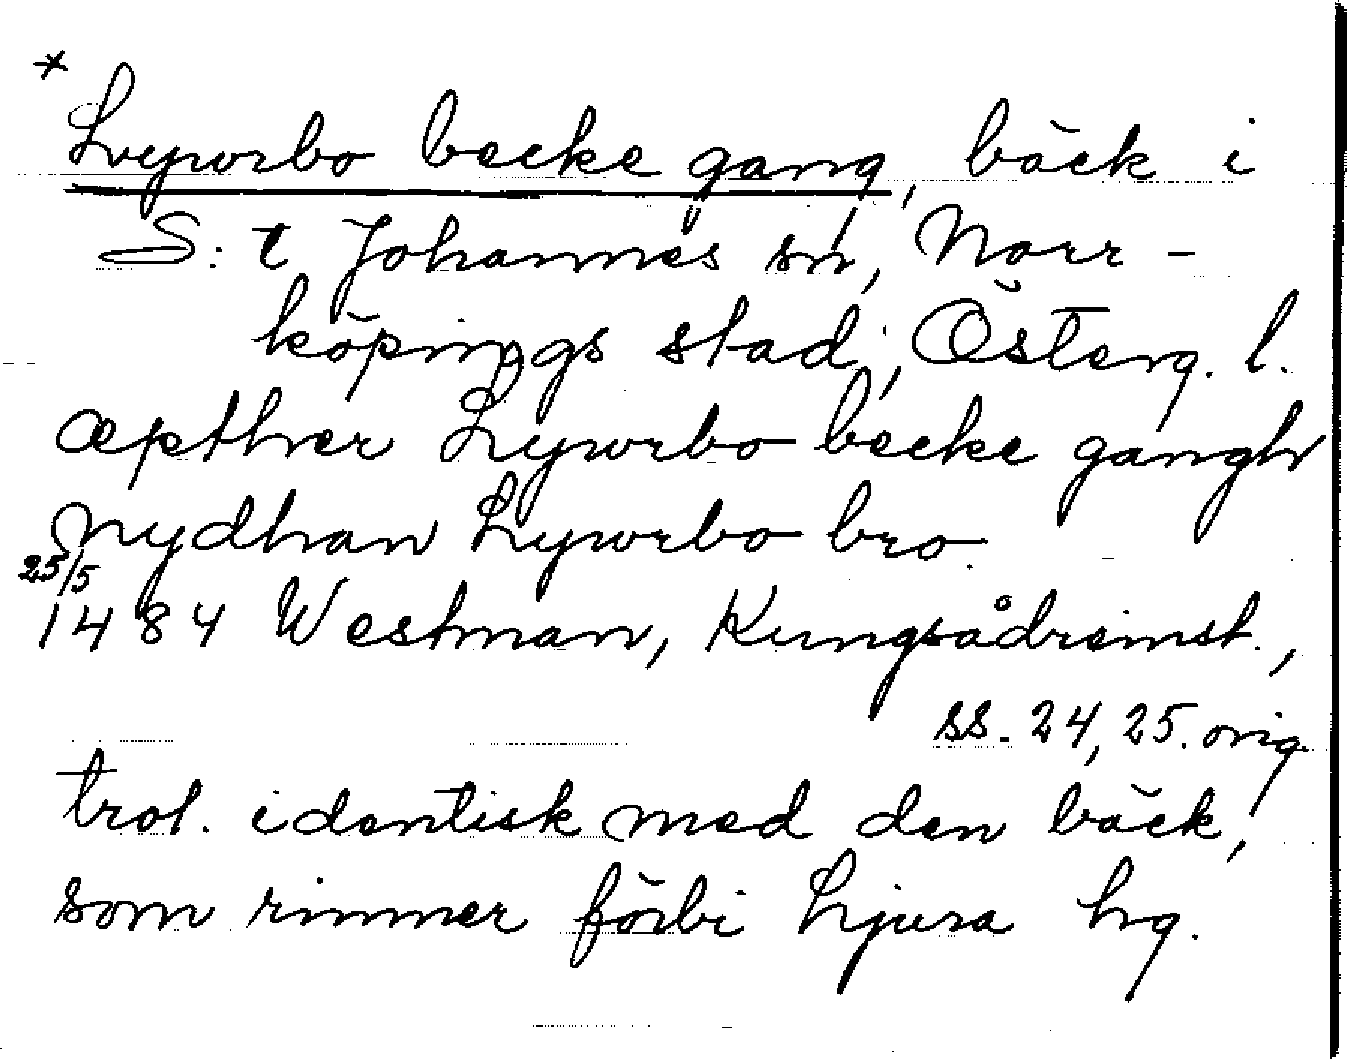 *
Lywrbo becke gang, bäck i
S:t Johannes sn, Norr-
köpings stad, Österg. l.
æpther Lywrbo becke gangh
nydhan Lywrbo bro.
25/5
1484 Westman, Kungsådreinst.,
ss. 24, 25. orig
trol. identisk med den bäck,
som rinner förbi Ljura hg.